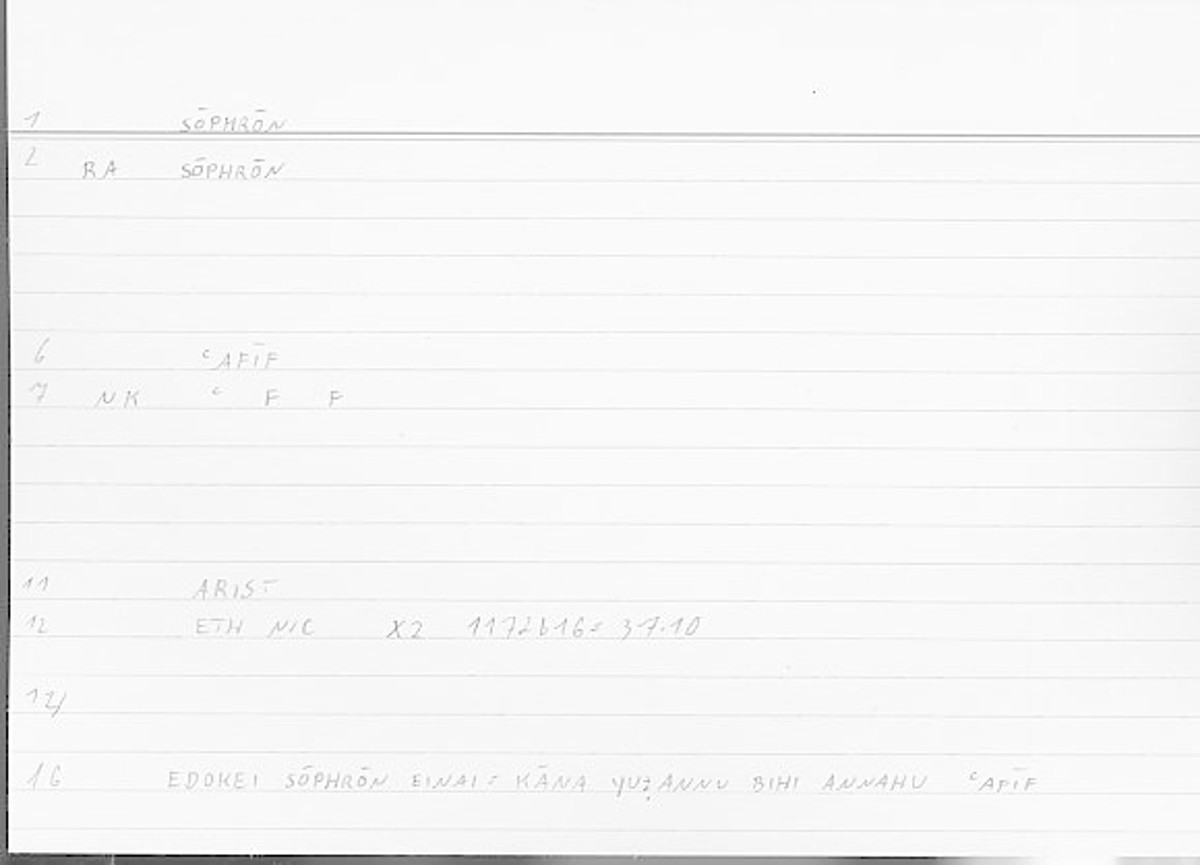 1 SŌPHRŌN
2 RA SŌPHRŌN
6 ʿAFĪF
7 NK ʿ F F
11 ARIST
12 ETH NIC X2 1172b16= 317.10
14
16 EDOKEI SŌPHRŌN EINAI = KĀNA YUẒANNU BIHI ANNAHU ʿAFĪF